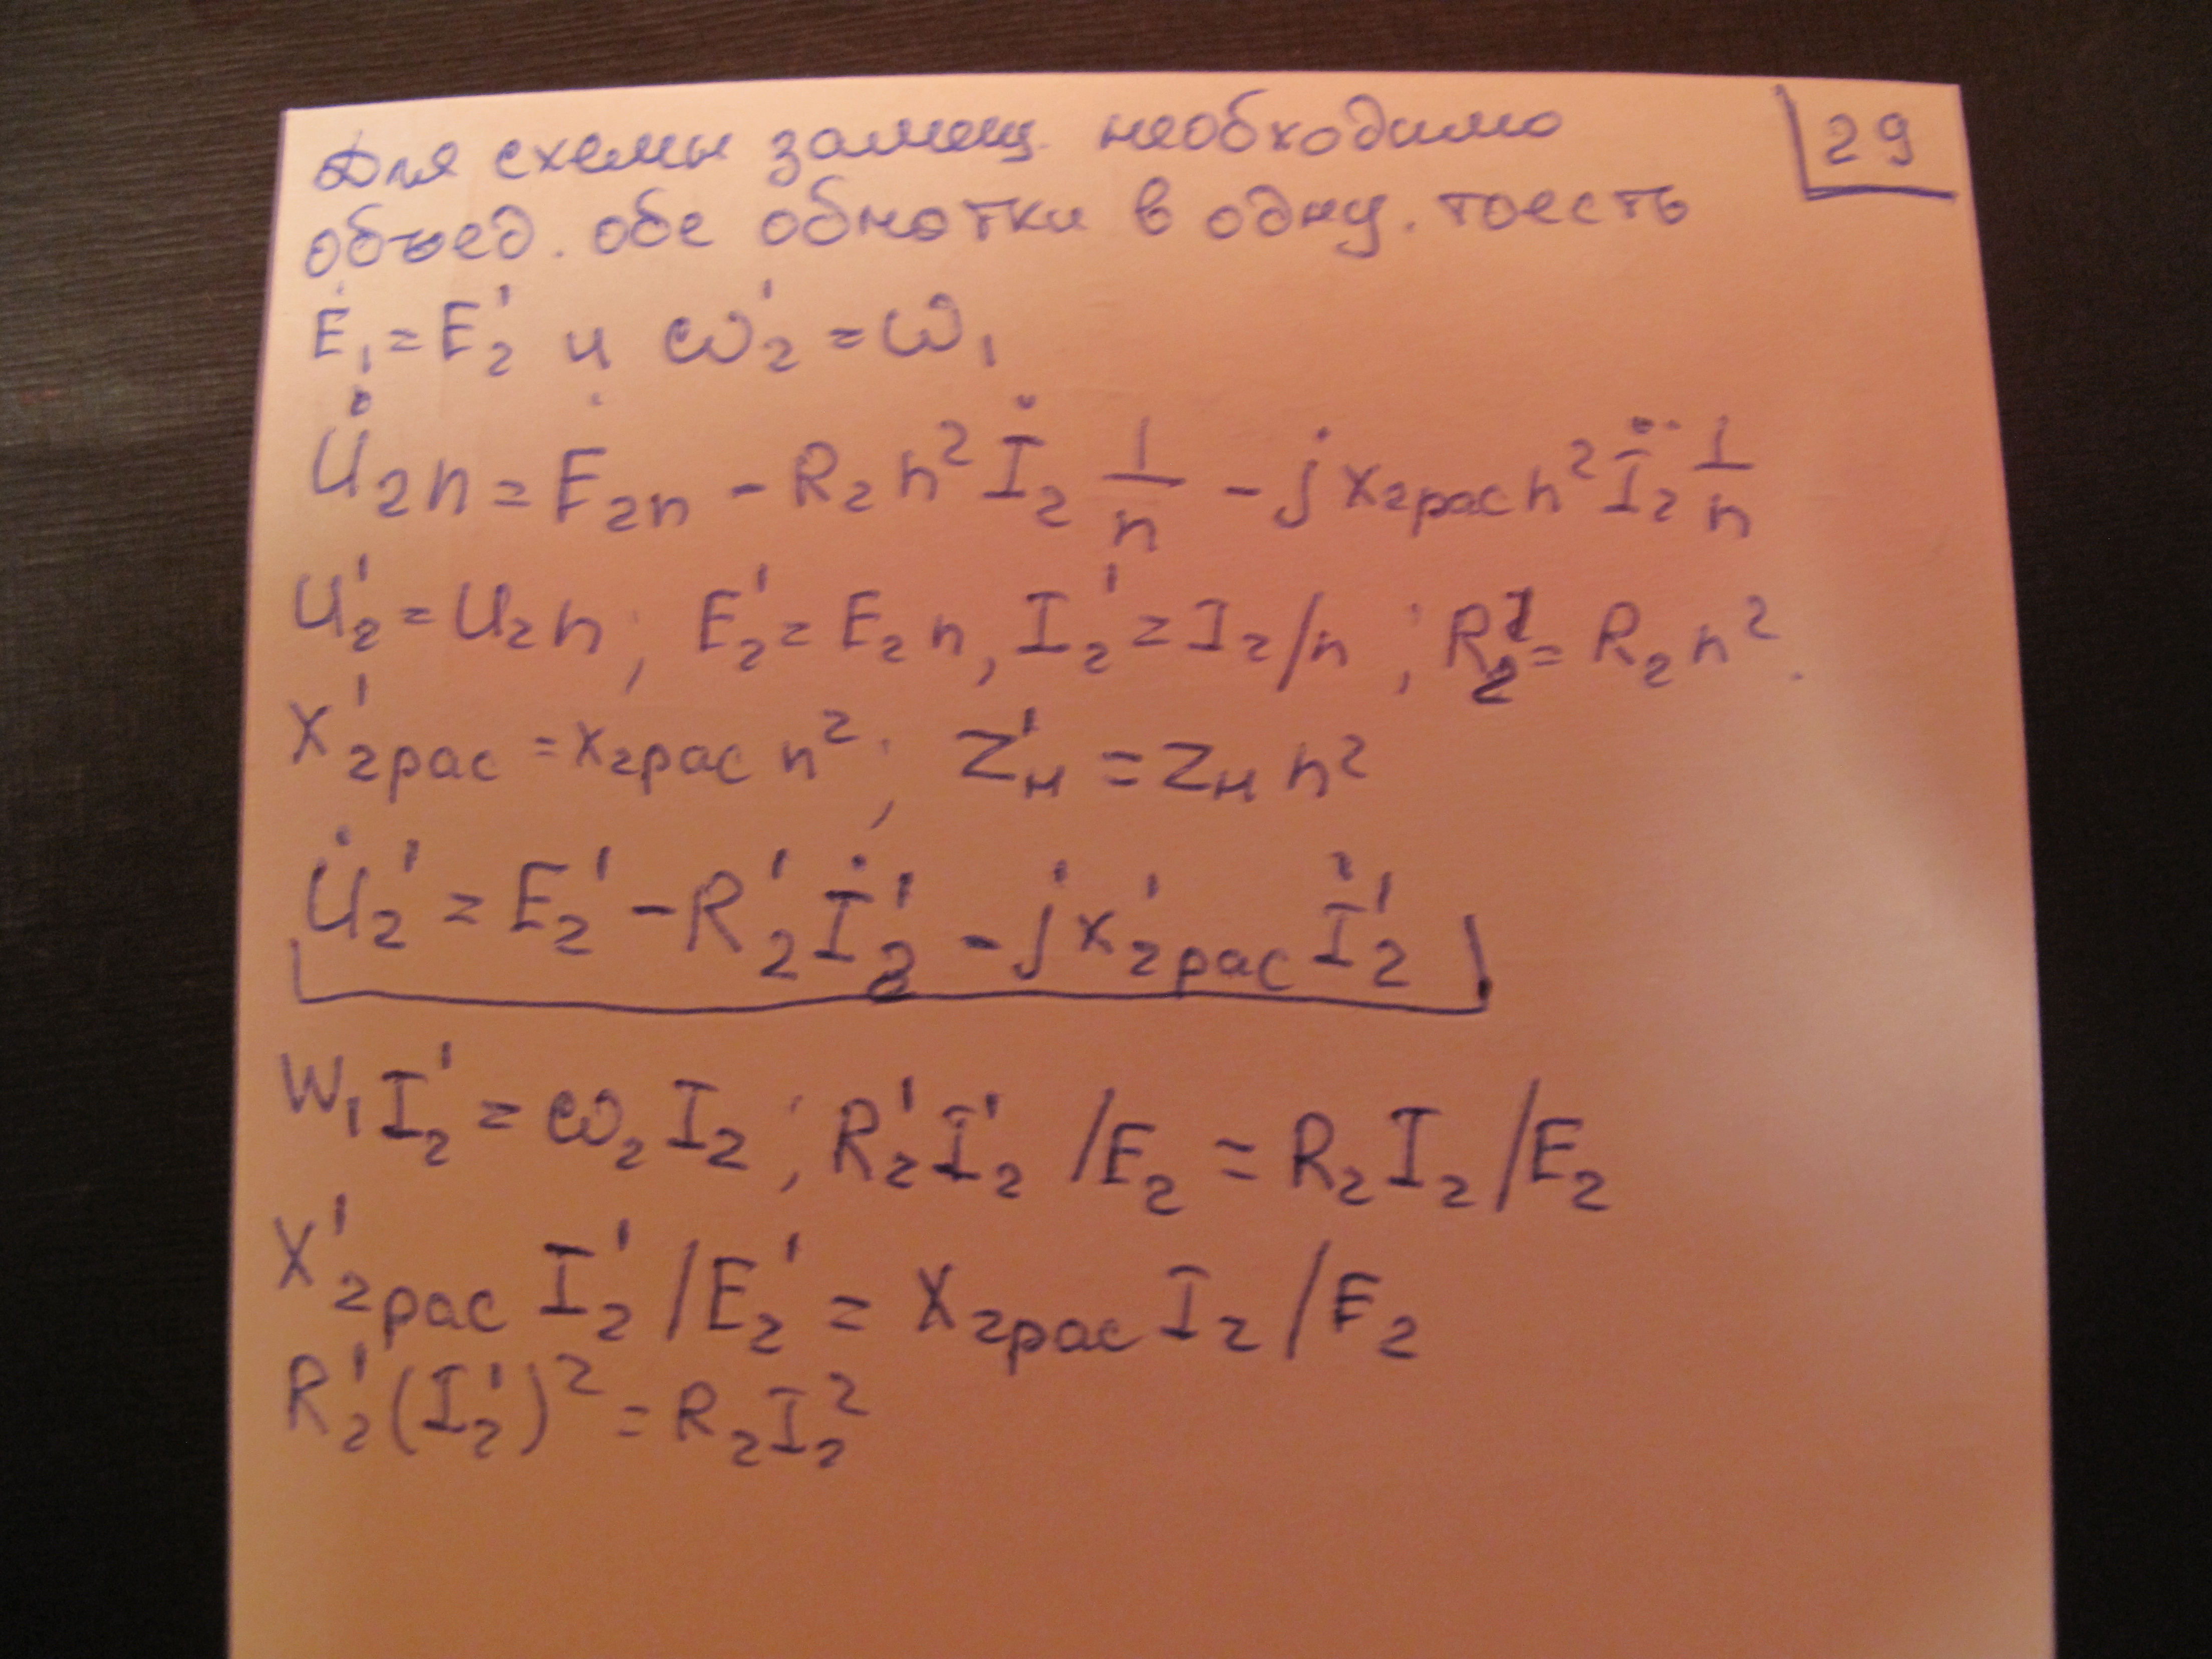 Для схемы замещ. необходимо
29
объед. обе обмотки в одну. тоесть
Ė₁ = E₂' и ω₂' = ω₁
U̇₂n = Ė₂n - R₂n² İ₂ 1/n - jx₂рас n² İ₂ 1/n
U₂' = U₂n; E₂' = E₂n, I₂' = I₂/n; R₂' = R₂n².
X'₂рас = x₂рас n²; Z'н = Zн n²
U̇₂' = E₂' - R₂' İ₂' - jx'₂рас İ₂'
W₁I₂' = ω₂I₂; R₂'I₂' /E₂ = R₂I₂/E₂
X'₂рас I₂' /E₂' = X₂рас I₂/E₂
R₂'(I₂')² = R₂I₂²